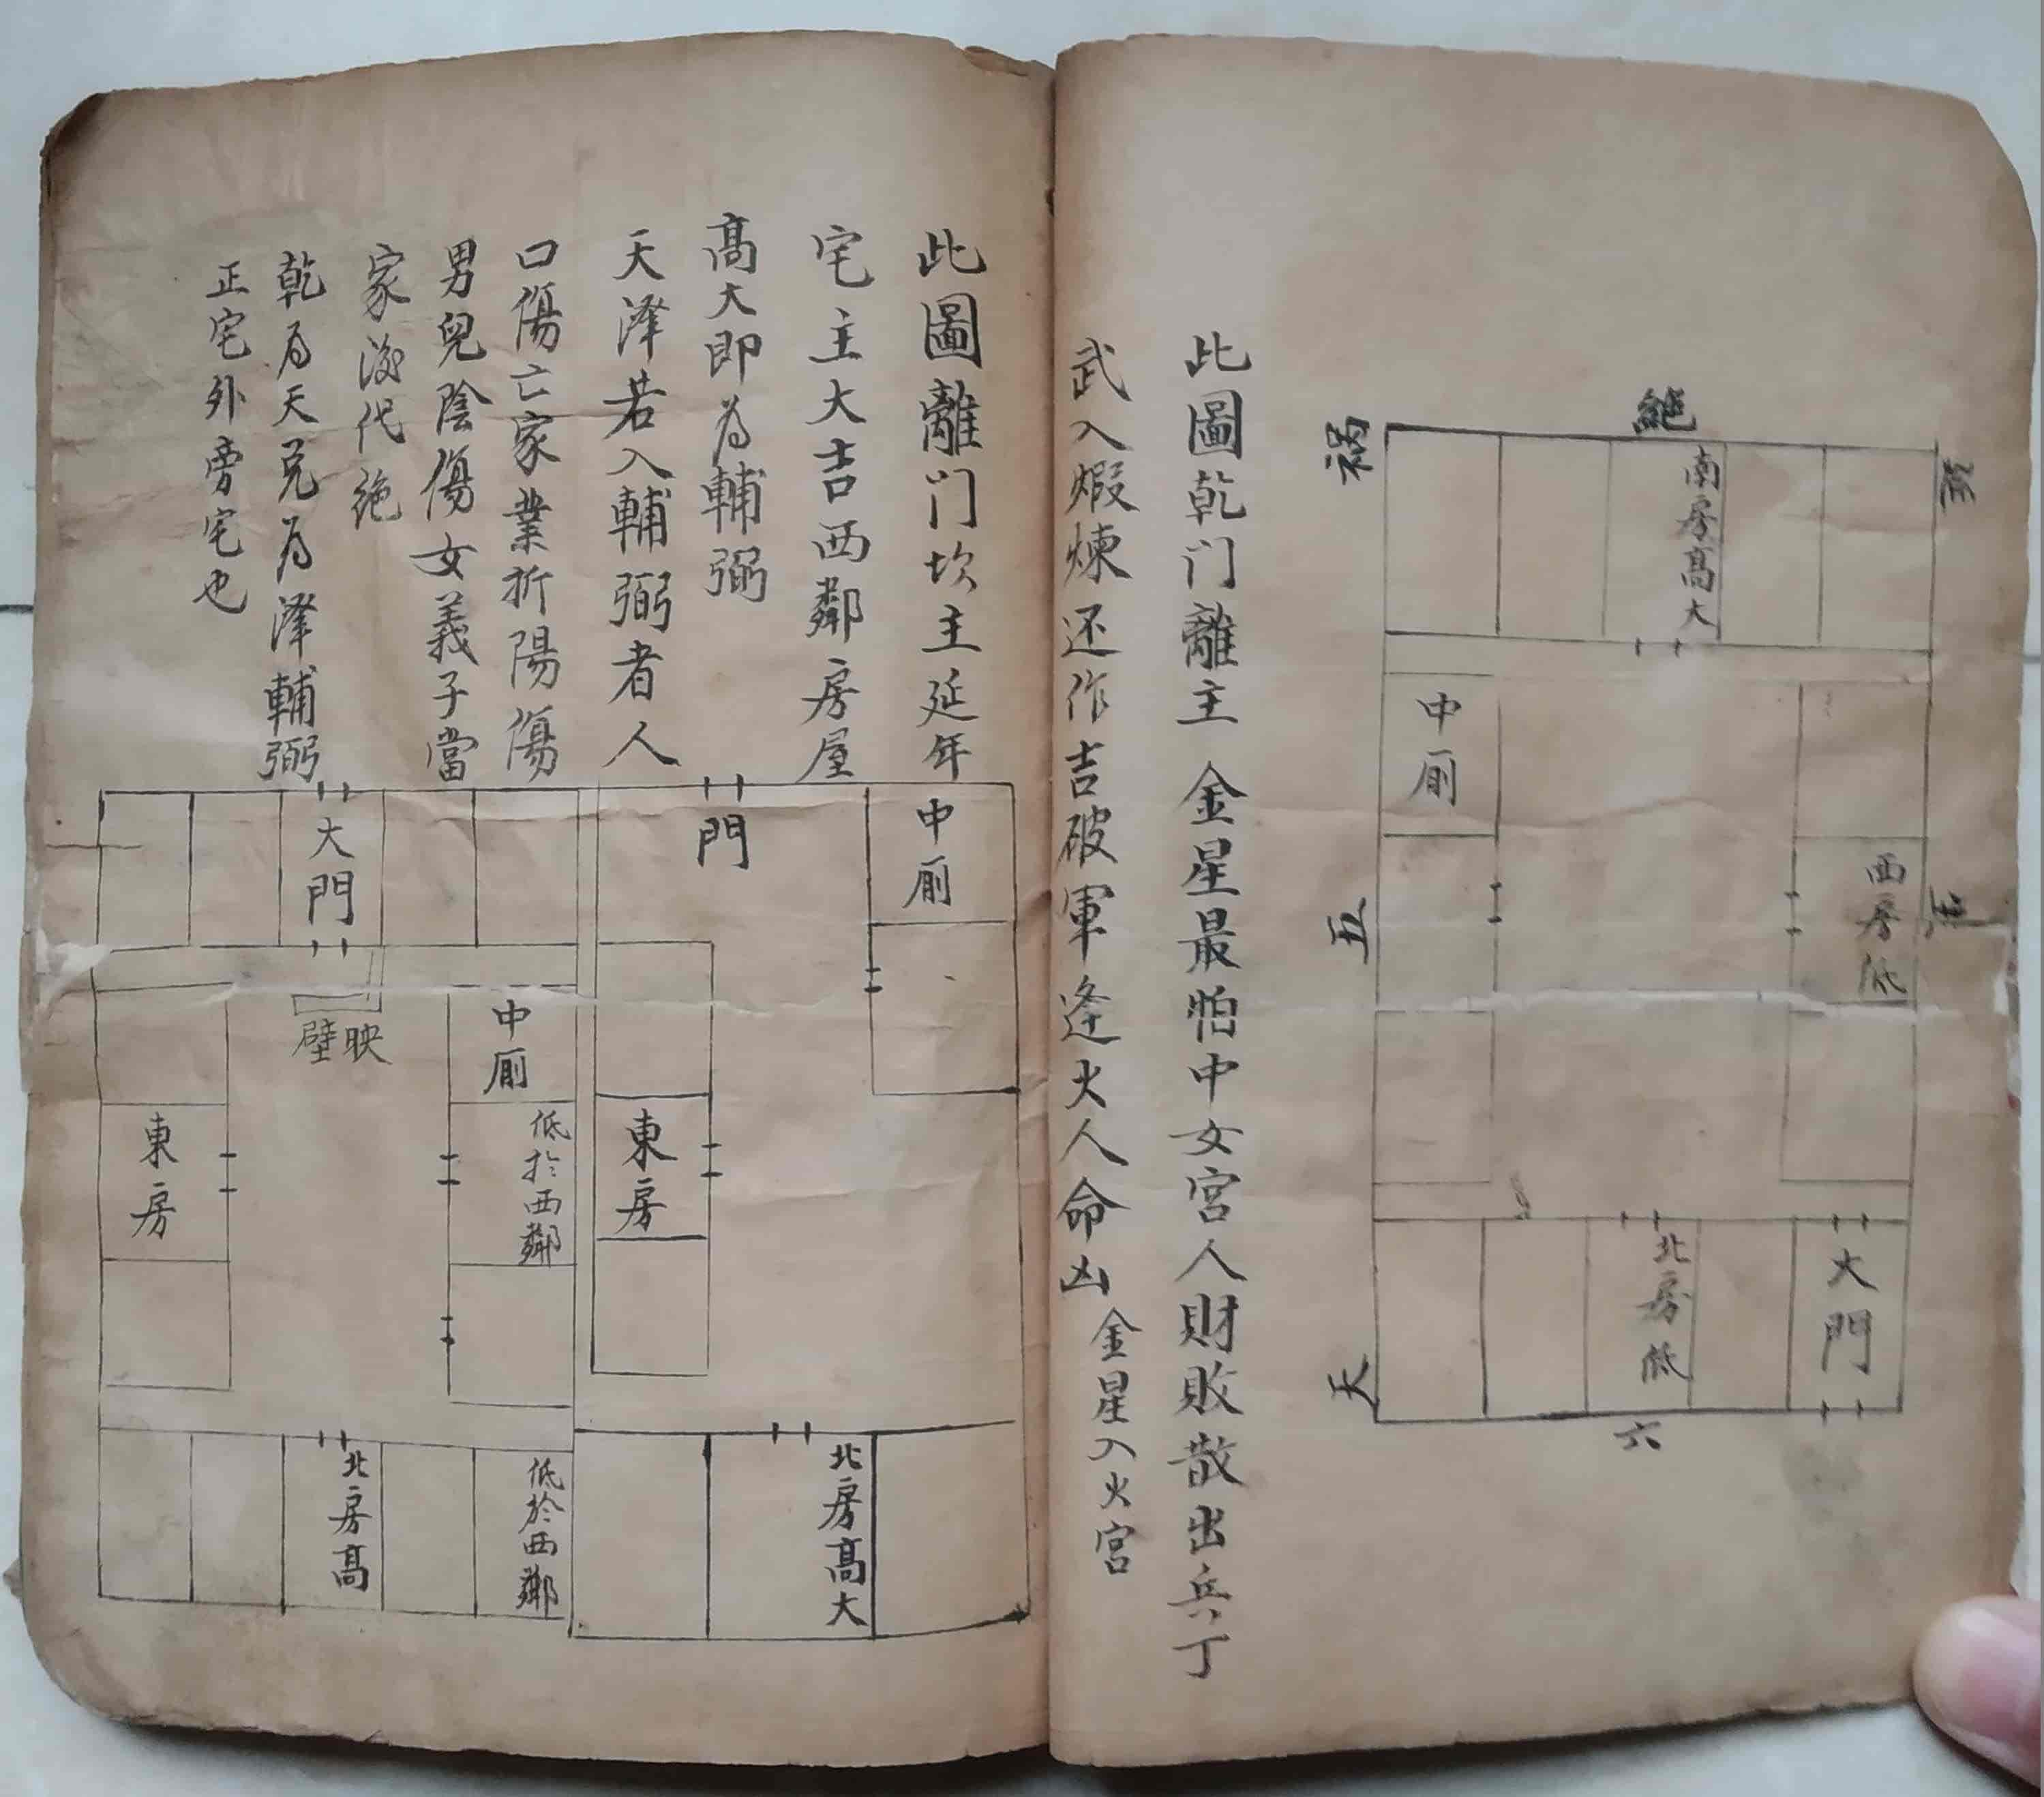 絶
禍
南房高大
中厠
五
西房低
天
北房低
大門
六
此圖乾门離主 金星最怕中女宮人財敗散出兵丁
武入煆煉还作吉破軍逢火人命凶
金星入火宮
此圖離门坎主延年
宅主大吉西鄰房屋
高大即为輔弼
天澤若入輔弼者人
口傷亡家業折陽傷
男兒陰傷女義子當
家後代絶
乾为天兑为澤輔弼
正宅外旁宅也
中厠
門
東房
北房高大
大門
映壁
中厠
低於西鄰
東房
低於西鄰
北房高